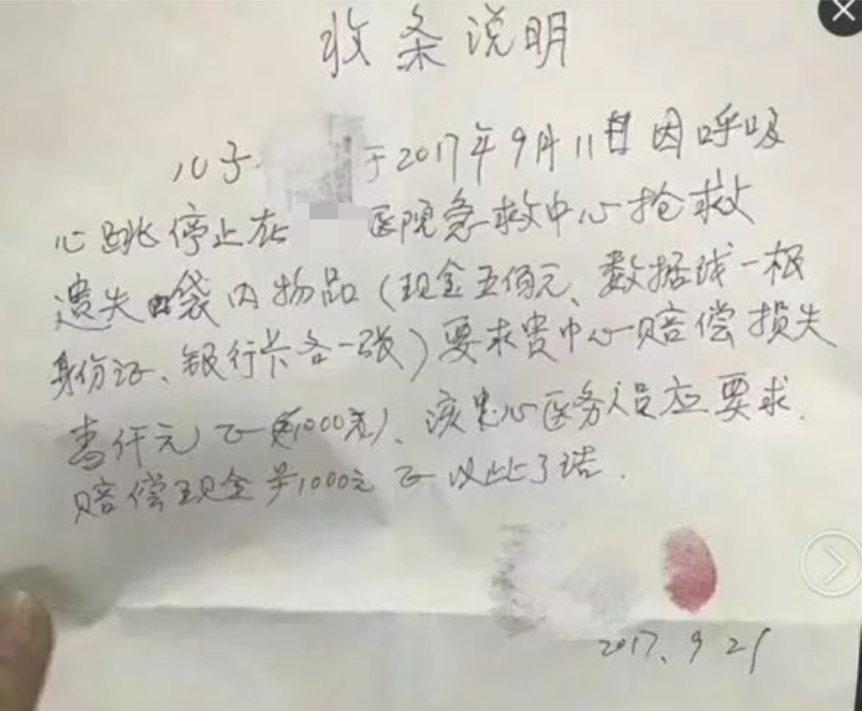 收条说明
儿子 于2017年9月11日因呼吸
心跳停止在 医院急救中心抢救
遗失袋内物品(现金五佰元、数据线一根
身份证、银行卡各一张)要求贵中心赔偿损失
壹仟元正(1000元)、该中心医务人员应要求.
赔偿现金1000元正以此了结.
2017.9.21